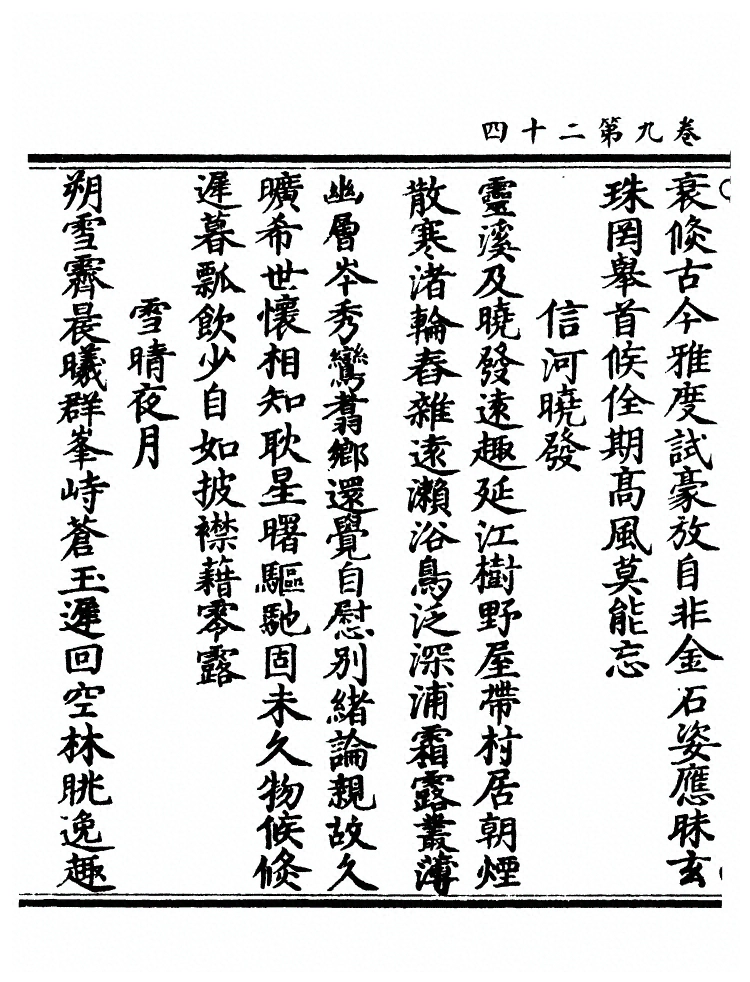 卷九第二十四
衰倏古今雅度試豪放自非金石姿應昧玄
珠罔舉首候佺期高風莫能忘
信河曉發
靈溪及曉發遠趣延江樹野屋帶村居朝煙
散寒渚輪舂雜遠瀨浴鳥泛深浦霜露叢薄
幽層岑秀鸞翥鄉還覺自慰別緒論親故久
曠希世懷相知耿星曙驅馳固未久物候倏
遲暮瓢飲少自如披襟藉零露
雪晴夜月
朔雪霽晨曦群峯峙蒼玉遲回空林眺逸趣